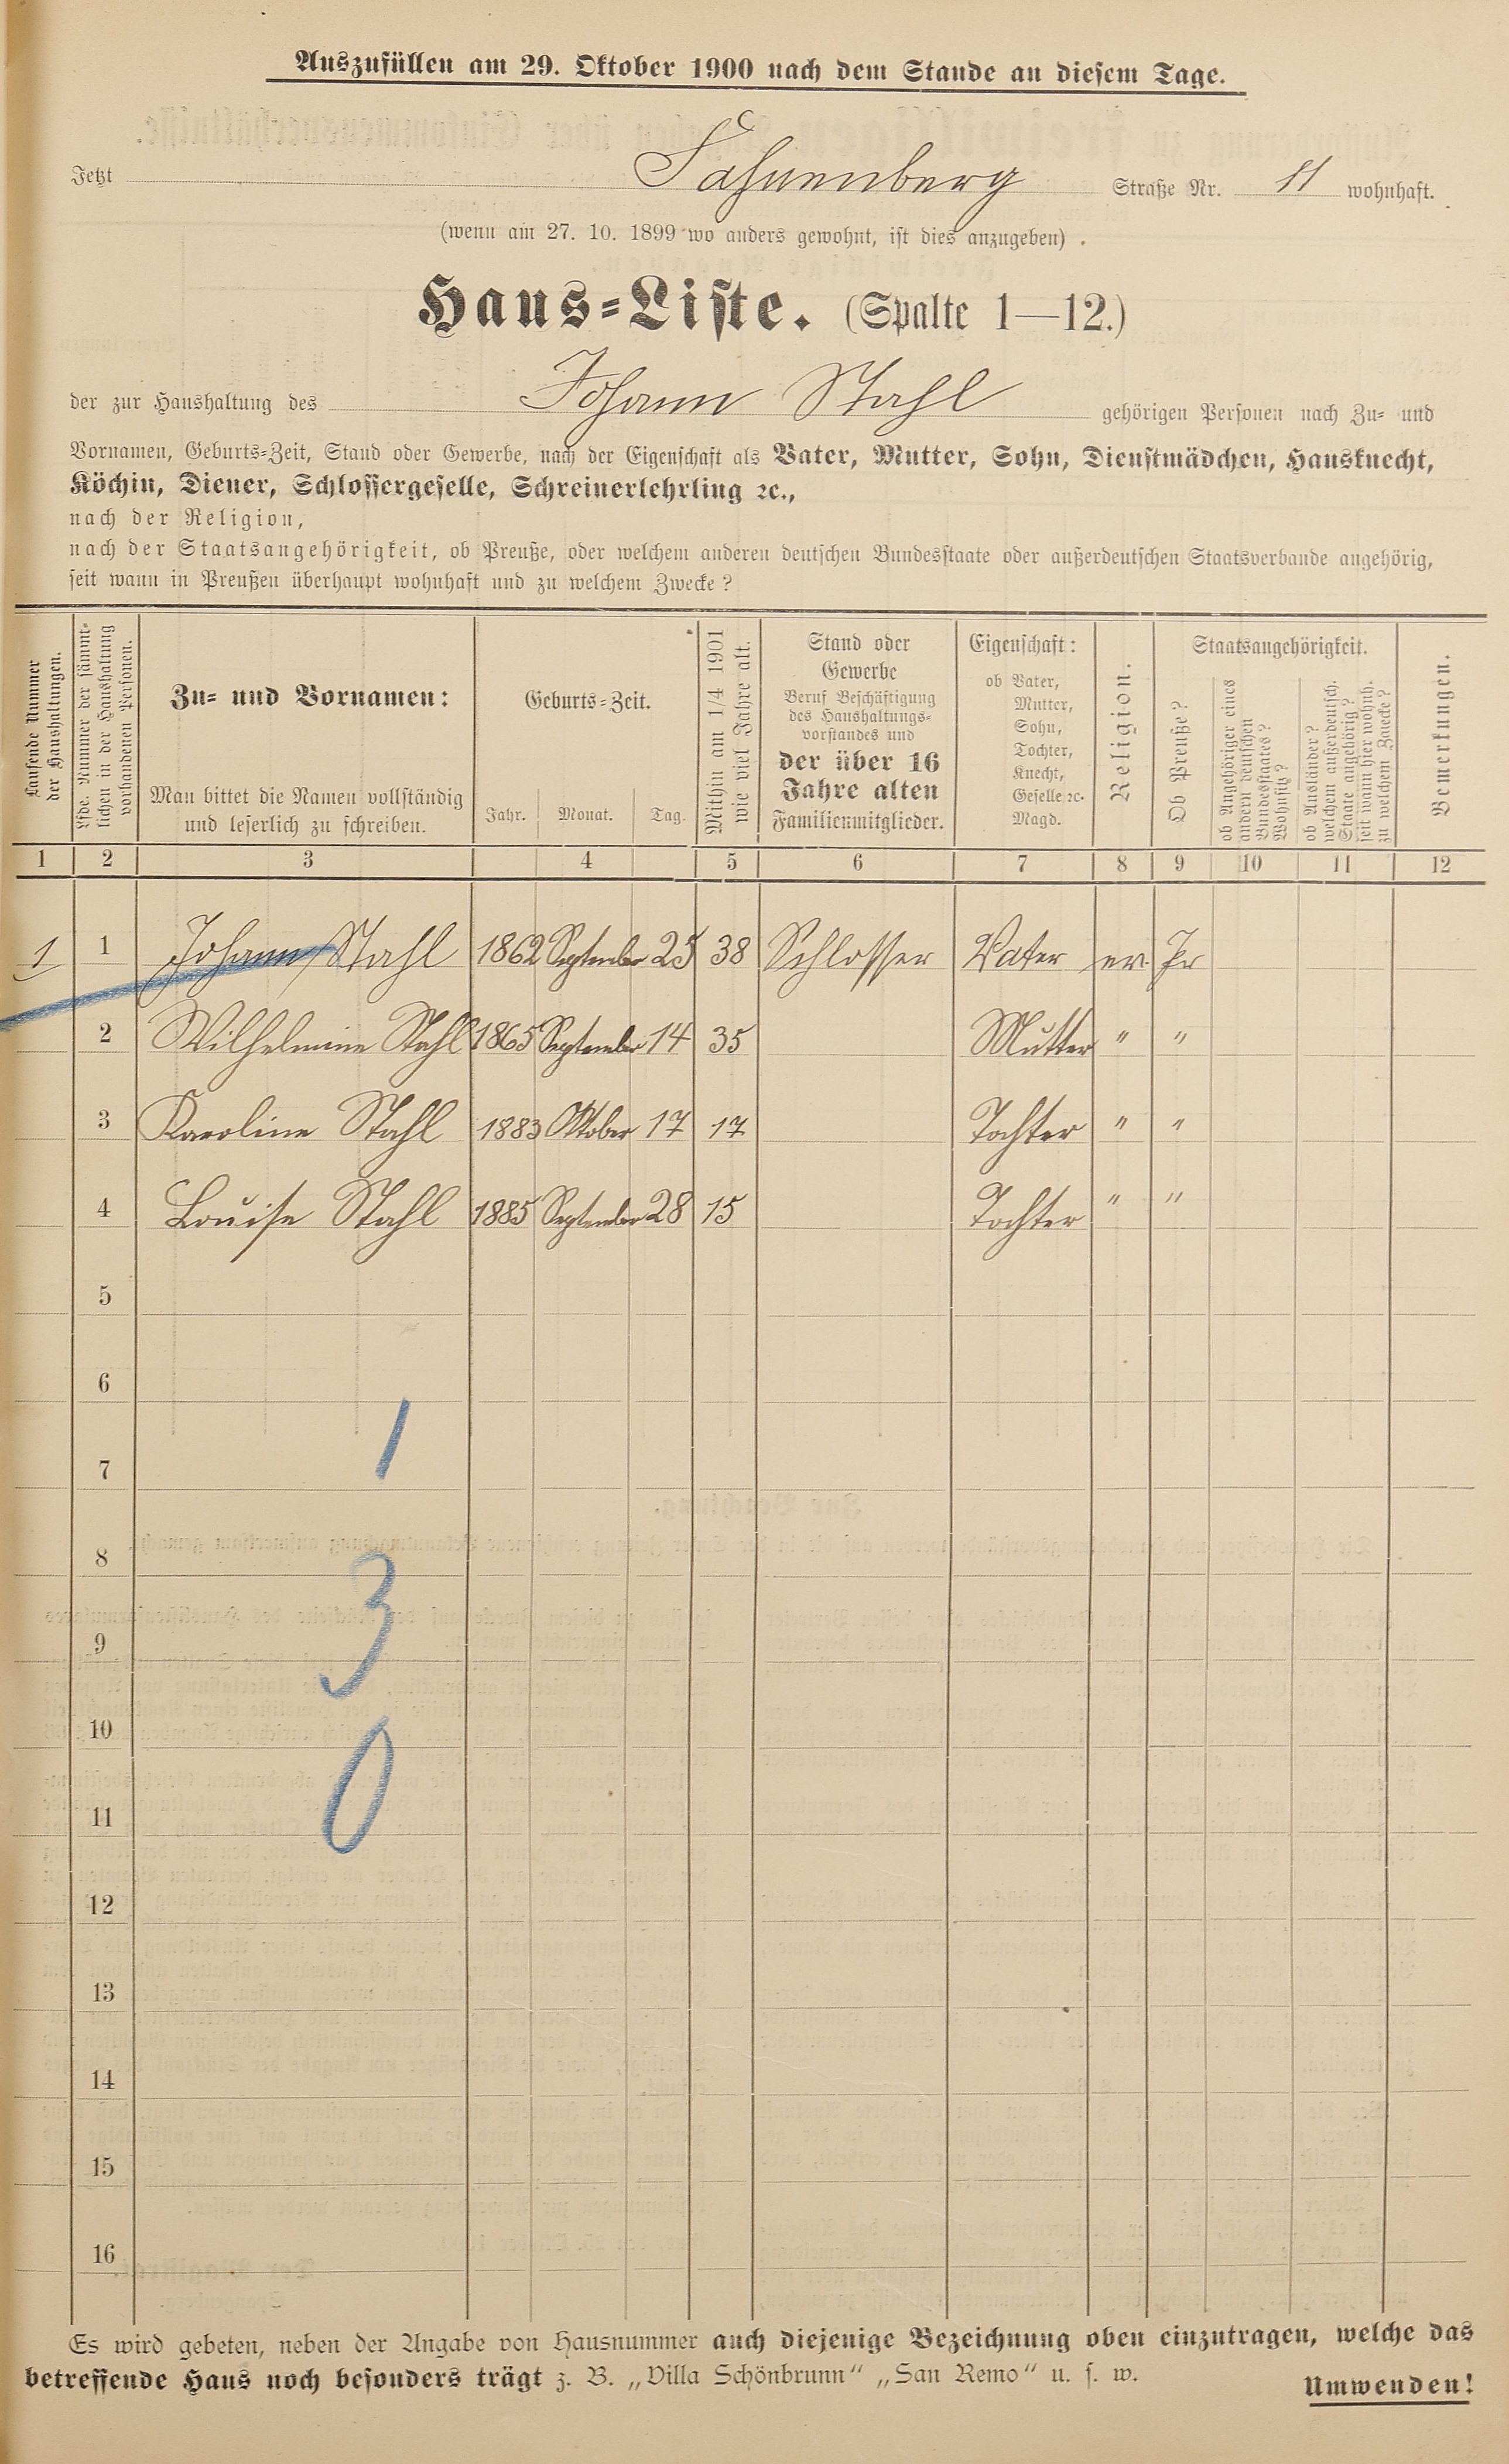 Auszufüllen am 29. Oktober 1900 nach dem Stande an diesem Tage.
Jetzt Fahnenberg Straße Nr. 11 wohnhaft.
(wenn am 27. 10. 1899 wo anders gewohnt, ist dies anzugeben)
Haus=Liste. (Spalte 1—12.)
der zur Haushaltung des Johann Stahl gehörigen Personen nach Zu= und
Vornamen, Geburts=Zeit, Stand oder Gewerbe, nach der Eigenschaft als Vater, Mutter, Sohn, Dienstmädchen, Hausknecht,
Köchin, Diener, Schlossergeselle, Schreinerlehrling ꝛc.,
nach der Religion,
nach der Staatsangehörigkeit, ob Preuße, oder welchem anderen deutschen Bundesstaate oder außerdeutschen Staatsverbande angehörig,
seit wann in Preußen überhaupt wohnhaft und zu welchem Zwecke?
Laufende Nummer
der Haushaltungen.
Lfde. Nummer der sämmt=
lichen in der Haushaltung
vorhandenen Personen.
Zu= und Vornamen:
Man bittet die Namen vollständig
und leserlich zu schreiben.
Geburts=Zeit.
Jahr. Monat. Tag.
Mithin am 1/4 1901
wie viel Jahre alt.
Stand oder
Gewerbe
Beruf Beschäftigung
des Haushaltungs=
vorstandes und
der über 16
Jahre alten
Familienmitglieder.
Eigenschaft:
ob Vater,
Mutter,
Sohn,
Tochter,
Knecht,
Geselle ꝛc.
Magd.
Religion.
Staatsangehörigkeit.
Ob Preuße?
ob Angehöriger eines
andern deutschen
Bundesstaates?
Wohnsitz?
ob Ausländer?
welchem außerdeutsch.
Staate angehörig?
seit wann hier wohnh.
zu welchem Zwecke?
Bemerkungen.
1 2 3 4 5 6 7 8 9 10 11 12
1 1 Johann Stahl 1862 September 25 38 Schlosser Vater ev Pr
2 Wilhelmine Stahl 1865 September 14 35 Mutter " "
3 Karoline Stahl 1883 Oktober 17 17 Tochter " "
4 Louise Stahl 1885 September 28 15 Tochter " "
5
6
7 1
8
9 3
10
11 0
12
13
14
15
16
Es wird gebeten, neben der Angabe von Hausnummer auch diejenige Bezeichnung oben einzutragen, welche das
betreffende Haus noch besonders trägt z. B. „Villa Schönbrunn“ „San Remo“ u. s. w.
Umwenden!